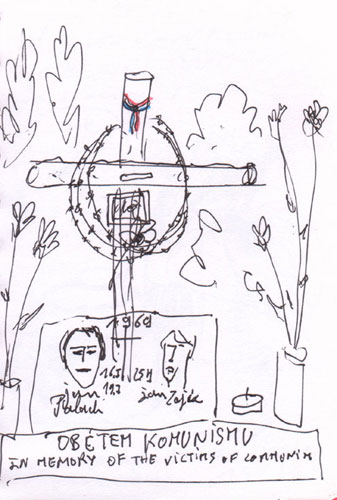 1969
16.1. 25.2.
jan jan
Palach Zajíc
OBĚTEM KOMUNISMU
IN MEMORY OF THE VICTIMS OF COMMUNISM